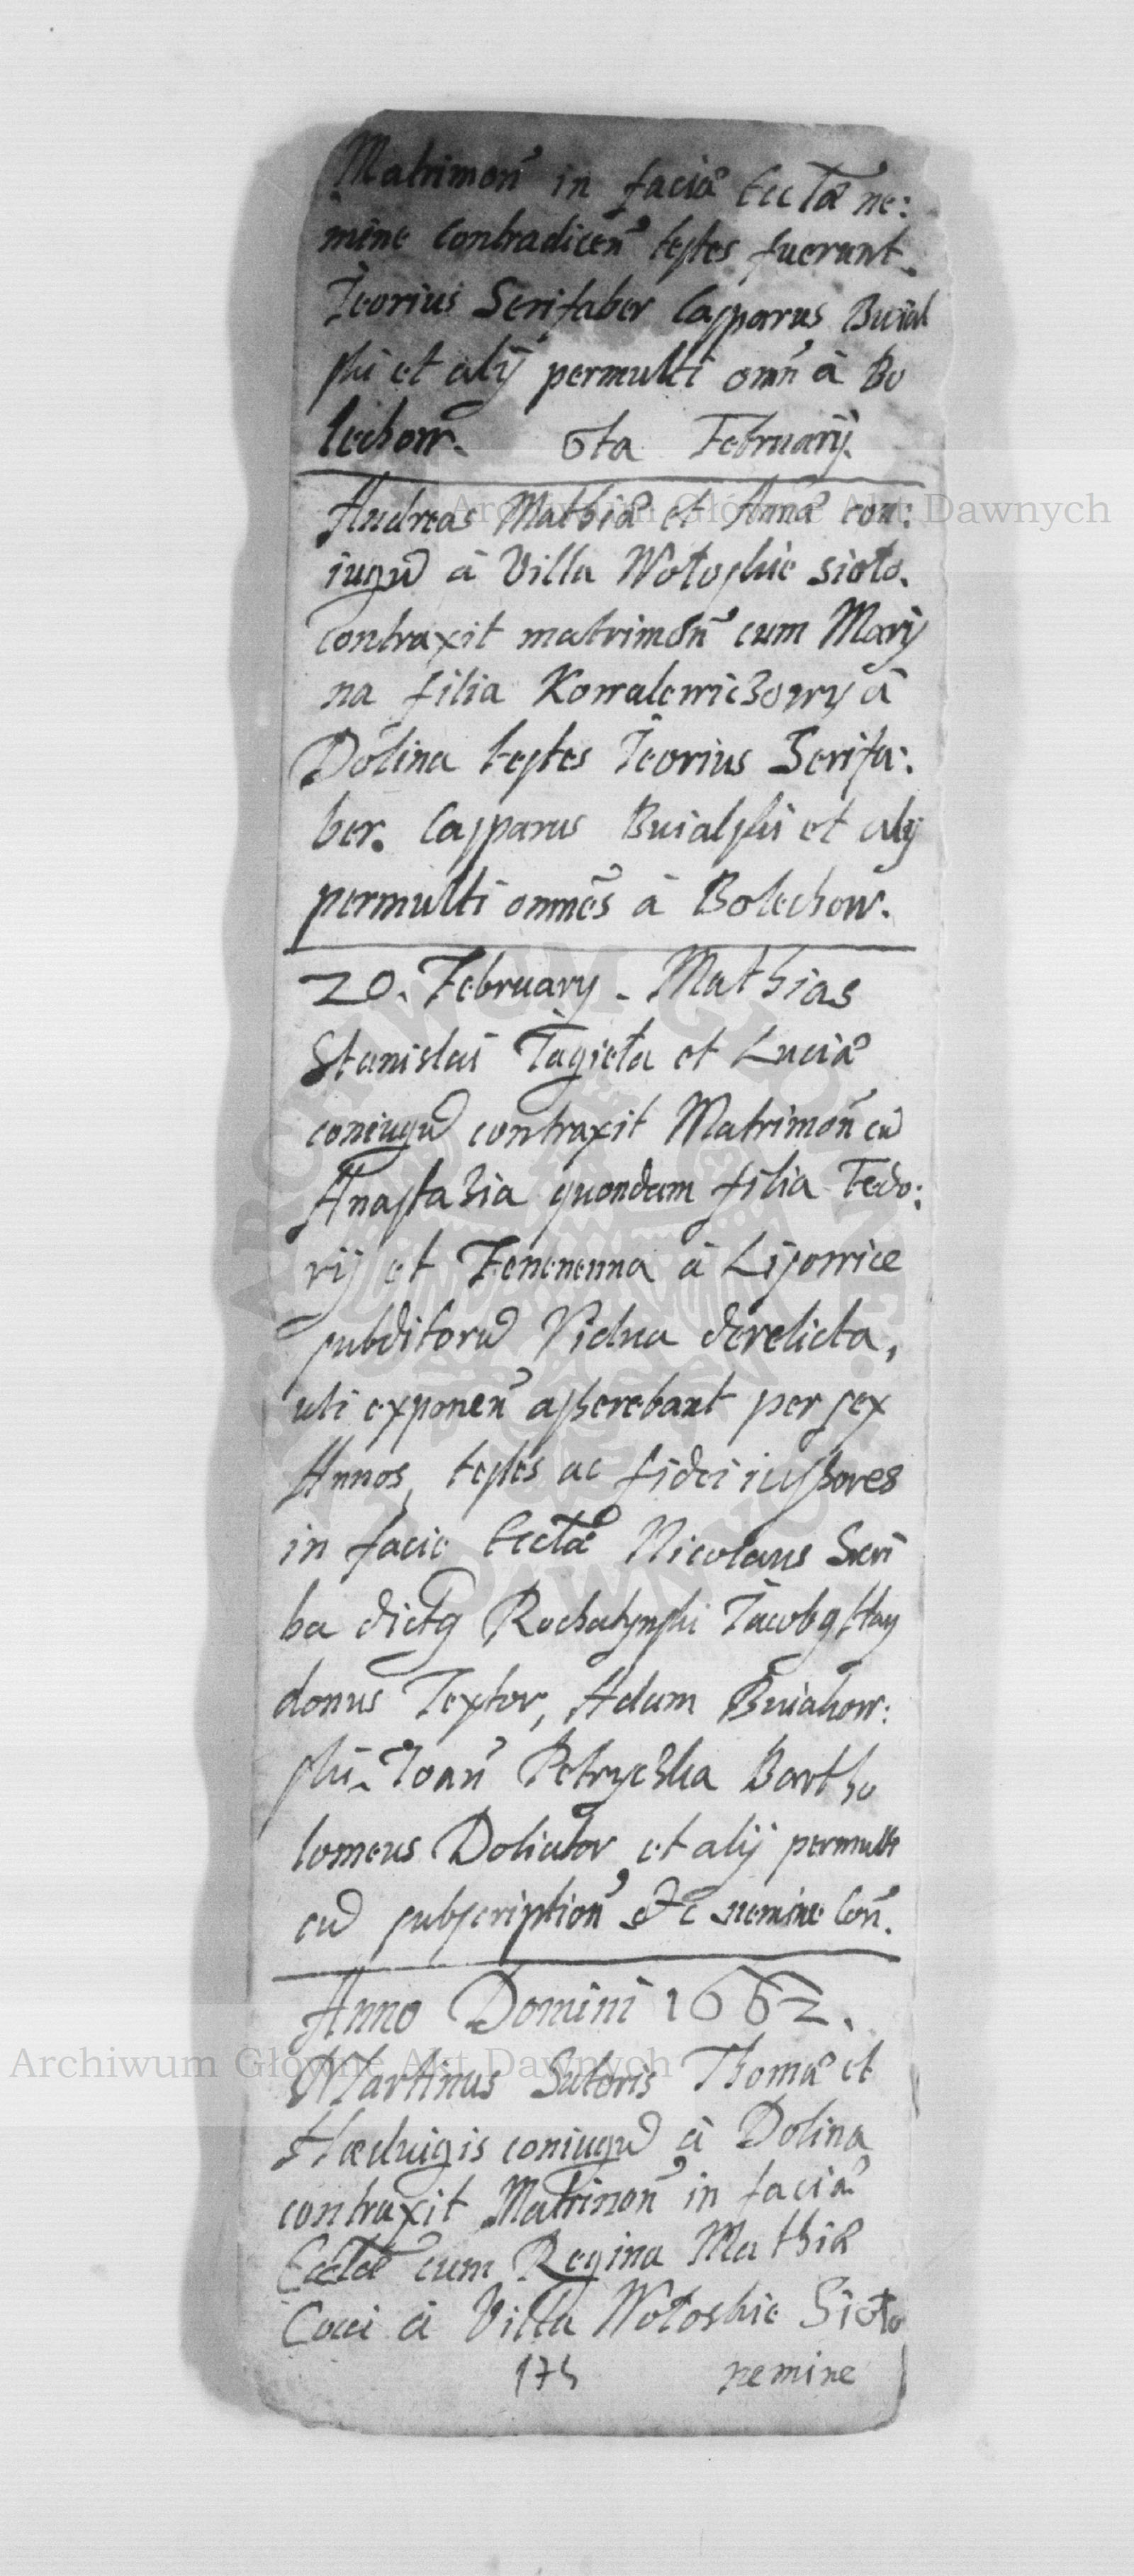 Matrimoñ in faciæ Eccłæ ne:
mine contradiceñ testes fuerunt.
Jeorius Serifaber Casparus Buial
ski et alij permulti omñ à Bo
lechow. 6ta February.
Andreas Mathiæ et Annæ con:
iugũ à Villa Wołoskie sioło.
contraxit matrimoñ cum Mary
na filia Kowalewiczowy à
Dolina testes Jeorius Serifa:
ber. Casparus Buialski et alij
permulti omnes à Bolechow.
20. February. Mathias
Stanislai Jagieła et Luciæ
coniugũ contraxit Matrimoñ cũ
Anastazia quondam filia Fedo:
rij et Fenenenna à Lipowice
subditorũ Vidua derelicta,
uti exponeñ asserebant per sex
Annos, testes ac fidei iussores
in facie Eccłæ Nicolaus Scri
ba dictg Rochatynski Jacobg Hay
donus Textor, Adam Buiakow:
ski. Joañ Petryczka Bartho
lomeus Doliator et alij permulti
cũ subscription̄ &c nemine Coñ.
Anno Domini 1662.
Martinus Sutoris Thomæ et
Hæduigis coniugũ à Dolina
contraxit Matrimoñ in faciæ
Eccłæ cum Regina Mathiæ
Coci à Villa Wołoskie Sioło
175 nemine
Archiwum Główne Akt Dawnych
Archiwum Główne Akt Dawnych